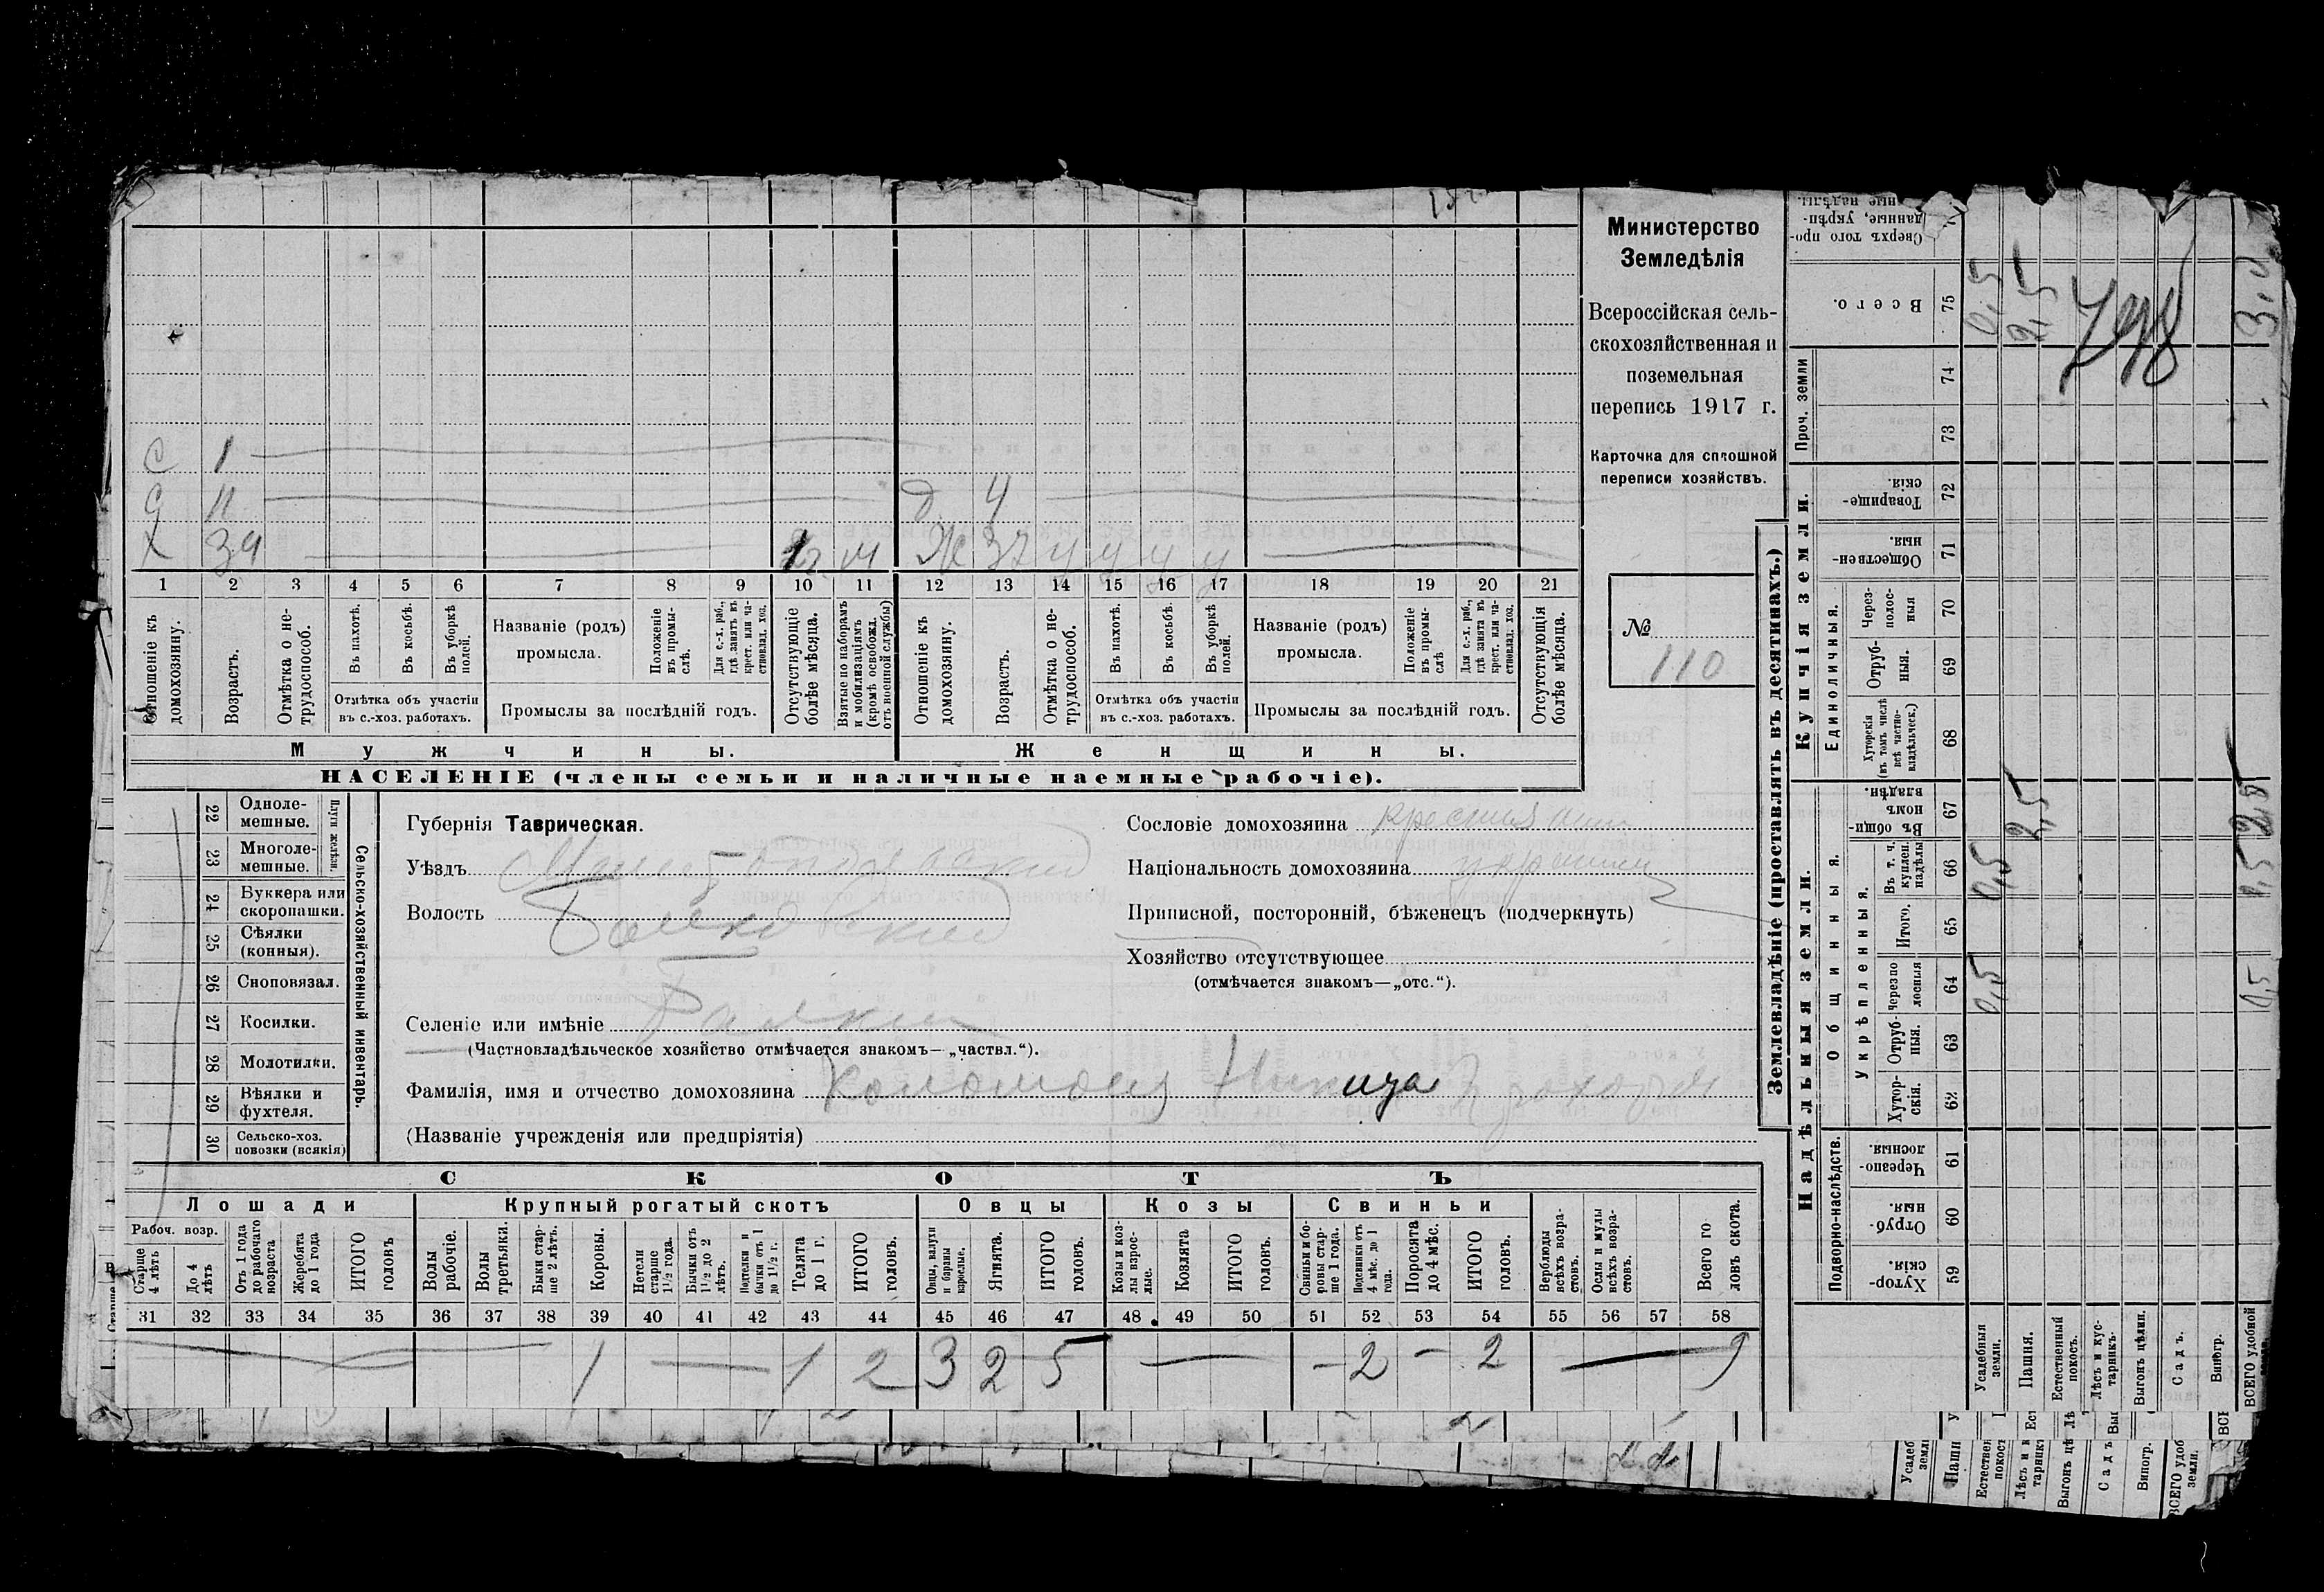 Министерство
Земледѣлія
Всероссійская сель-
скохозяйственная и
поземельная
перепись 1917 г.
Карточка для сплошной
переписи хозяйствъ.
№
110
с 1
с 11 д. 4
х 39 12 м ж 37 ч ч ч ч
1 2 3 4 5 6 7 8 9 10 11 12 13 14 15 16 17 18 19 20 21
Отношеніе къ домохозяину.
Возрастъ.
Отмѣтка о не-трудоспособ.
Въ пахотѣ.
Въ косьбѣ.
Въ уборкѣ полей.
Отмѣтка объ участіи
въ с.-хоз. работахъ.
Названіе (родъ)
промысла.
Положеніе въ промы-слѣ.
Для с.-х. раб., гдѣ занятъ въ крест. или ча-стновлад. хоз.
Промыслы за послѣдній годъ.
Отсутствующіе болѣе мѣсяца.
Взятые по наборамъ и мобилизаціямъ (кромѣ освобожд. отъ военной службы)
Отношеніе къ домохозяину.
Возрастъ.
Отмѣтка о не-трудоспособ.
Въ пахотѣ.
Въ косьбѣ.
Въ уборкѣ полей.
Отмѣтка объ участіи
въ с.-хоз. работахъ.
Названіе (родъ)
промысла.
Положеніе въ промы-слѣ
Для с.-х. раб., гдѣ занята въ крест. или ча-стновлад. хоз.
Промыслы за послѣдній годъ.
Отсутствующія болѣе мѣсяца.
Мужчины. Женщины.
НАСЕЛЕНІЕ (члены семьи и наличные наемные рабочіе).
Сельско-хозяйственный инвентарь.
Плуги желѣзн.
22 Одноле-мешные.
23 Многоле-мешные.
24 Буккера или скоропашки.
25 Сѣялки (конныя).
26 Сноповязал.
27 Косилки.
28 Молотилки.
29 Вѣялки и фухтеля.
30 Сельско-хоз. повозки (всякія)
Губернія Таврическая.
Уѣздъ
Волость
Селеніе или имѣніе Балки
(Частновладѣльческое хозяйство отмѣчается знакомъ—„частвл.“).
Фамилія, имя и отчество домохозяина Коломоец Никита
(Названіе учрежденія или предпріятія)
Сословіе домохозяина крестьянин
Національность домохозяина украинец
Приписной, посторонній, бѣженецъ (подчеркнуть)
Хозяйство отсутствующее
(отмѣчается знакомъ—„отс.“).
СКОТЪ
Лошади Крупный рогатый скотъ Овцы Козы Свиньи
Рабоч. возр.
Старше 4 лѣтъ
До 4 лѣтъ
Отъ 1 года до рабочаго возраста
Жеребята до 1 года
ИТОГО головъ
Волы рабочіе.
Волы третьяки.
Быки стар-ше 2 лѣтъ.
Коровы.
Нетели старше 1½ года.
Бычки отъ 1½ до 2 лѣтъ.
Подтелки и бычки отъ 1 до 1½ г.
Телята до 1 г.
ИТОГО головъ.
Овцы, валухи и бараны взрослые.
Ягнята.
ИТОГО головъ.
Козы и коз-лы взрос-лые.
Козлята
ИТОГО головъ.
Свиньи и бо-ровы стар-ше 1 года.
Подсвинки отъ 4 мѣс. до 1 года.
Поросята до 4 мѣс.
ИТОГО головъ.
Верблюды всѣхъ возра-стовъ.
Ослы и мулы всѣхъ возра-стовъ.
Всего го ловъ скота.
31 32 33 34 35 36 37 38 39 40 41 42 43 44 45 46 47 48 49 50 51 52 53 54 55 56 57 58
1 — 1 2 3 2 5 — – 2 – 2 — 9
Землевладѣніе (проставлять въ десятинахъ.)
Надѣльныя земли. Купчія земли.
Подворно-наслѣдств.
Общинныя.
Укрѣпленныя.
Единоличныя.
Проч. земли
59 Хутор-скія.
60 Отруб-ныя.
61 Черезпо-лосныя.
62 Хутор-скія.
63 Отруб-ныя.
64 Черезпо лосныя
65 Итого.
66 Въ т. ч. куплен. надѣлы
67 Въ общин-номъ владѣн.
68 Хуторскія (въ томъ числѣ всѣ частно-владѣльческ.)
69 Отруб-ныя.
70 Через-полос-ныя
71 Обществен-ныя.
72 Товарище-скія.
73
74
75 Всего.
Сверхъ того про-данные, укрѣп-ные надѣлы.
Усадебныя земли. 0,5 0,5 0,5
Пашня. 2,5 2,5
Естественный покосъ.
Лѣсъ и кус-тарникъ.
Выгонъ цѣлин.
Садъ.
Виногр.
ВСЕГО удобной земли. 0,5 0,5 2,5 3,0
798